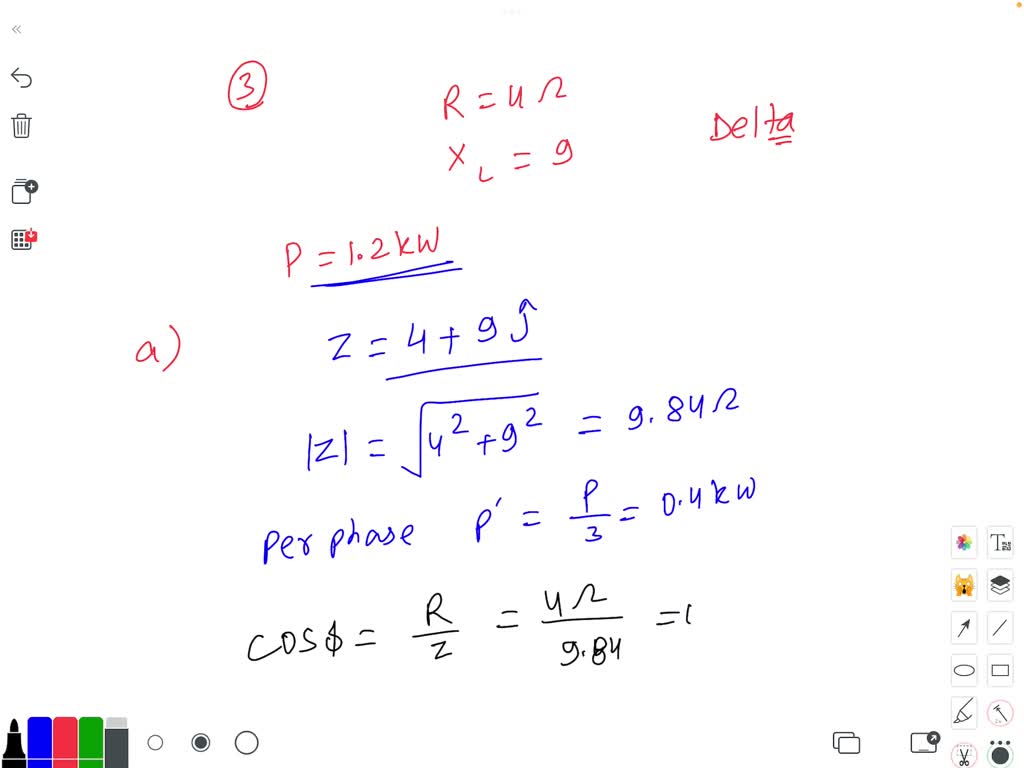 3
R = 4 Ω
X_L = 9
Delta
P = 1.2 kW
a)
Z = 4 + 9 ĵ
|Z| = √(4² + 9²) = 9.84 Ω
Per phase P' = P/3 = 0.4 kW
cosφ = R/Z = 4Ω/9.84 =